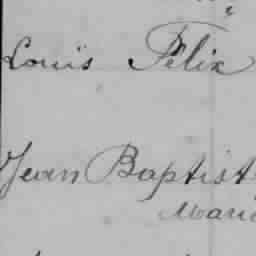 Louis Felix
Jean Baptist
Marie